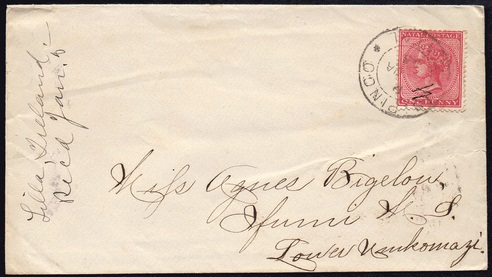 Miss Agnes Bigelow,
Ifumi M. S.
Lower Umkomazi.
Lilla Ireland.
Rec'd Jan. 6
NATAL POSTAGE
ONE PENNY